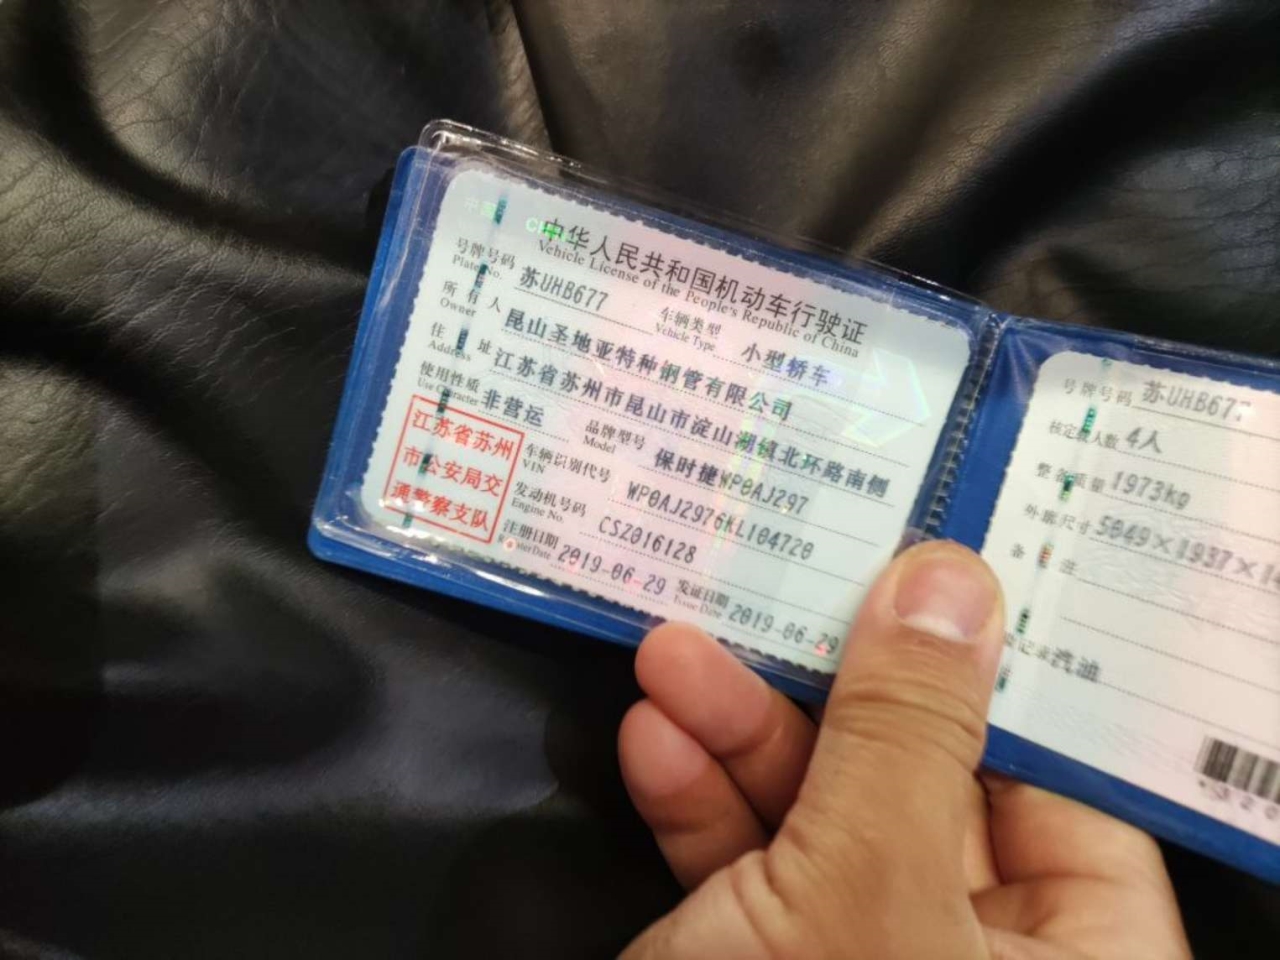 中华人民共和国机动车行驶证
Vehicle License of the People's Republic of China
号牌号码 苏UHB677 车辆类型 小型轿车
Plate No. Vehicle Type
所有人 昆山圣地亚特种钢管有限公司
Owner
住址 江苏省苏州市昆山市淀山湖镇北环路南侧
Address
使用性质 非营运 品牌型号 保时捷WP0AJ297
Use Character Model
江苏省苏州
市公安局交
通警察支队
车辆识别代号 WP0AJ2976KL104720
VIN
发动机号码 CSZ016128
Engine No.
注册日期 2019-06-29 发证日期 2019-06-29
Register Date Issue Date
号牌号码 苏UHB677
核定载人数 4人
整备质量 1973kg
外廓尺寸 5049×1937×1
备注
汽油